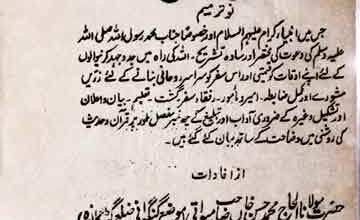 نو ترمیم
جس میں انبیاء کرام علیہم السلام اور خصوصاً جناب محمد رسول اللہ صلی اللہ
علیہ وسلم کی دعوت کی مختصر اور سادہ تشریح۔ اللہ کی راہ میں جدوجہد کرنیوالوں
کے لئے اپنے اوقات کو قیمتی اور اس سفر کو سراسر روحانی بنانے کے لئے زریں
مشورے اور مکمل ضابطہ۔ امیر و مامور۔ رفقاء سفر۔ گشت۔ تعلیم۔ بیان و اعلان
اور تشکیل وغیرہ کے ضروری آداب اور تبلیغ کے چھ نمبر مفصل طور پر قرآن و حدیث
کی روشنی میں وضاحت کے ساتھ بیان کئے گئے ہیں۔
از افادات
حضرت مولانا الحاج محمد صاحب میواتی